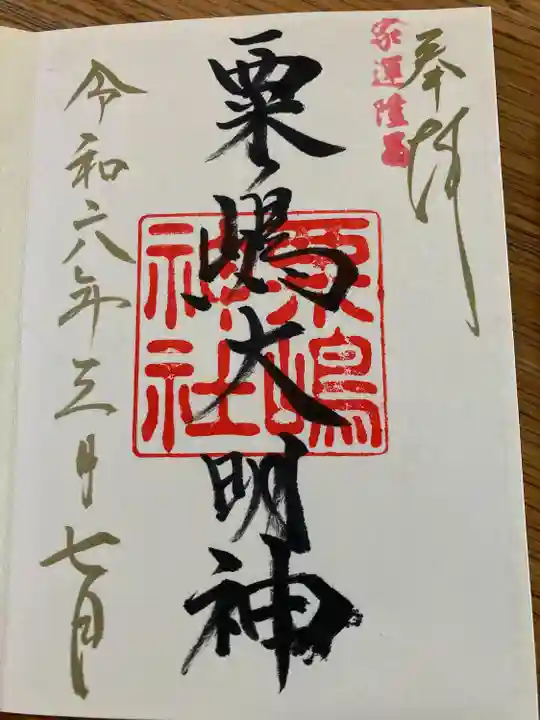 奉拝
家運隆昌
粟嶋大明神
粟嶋神社
令和六年三月七日